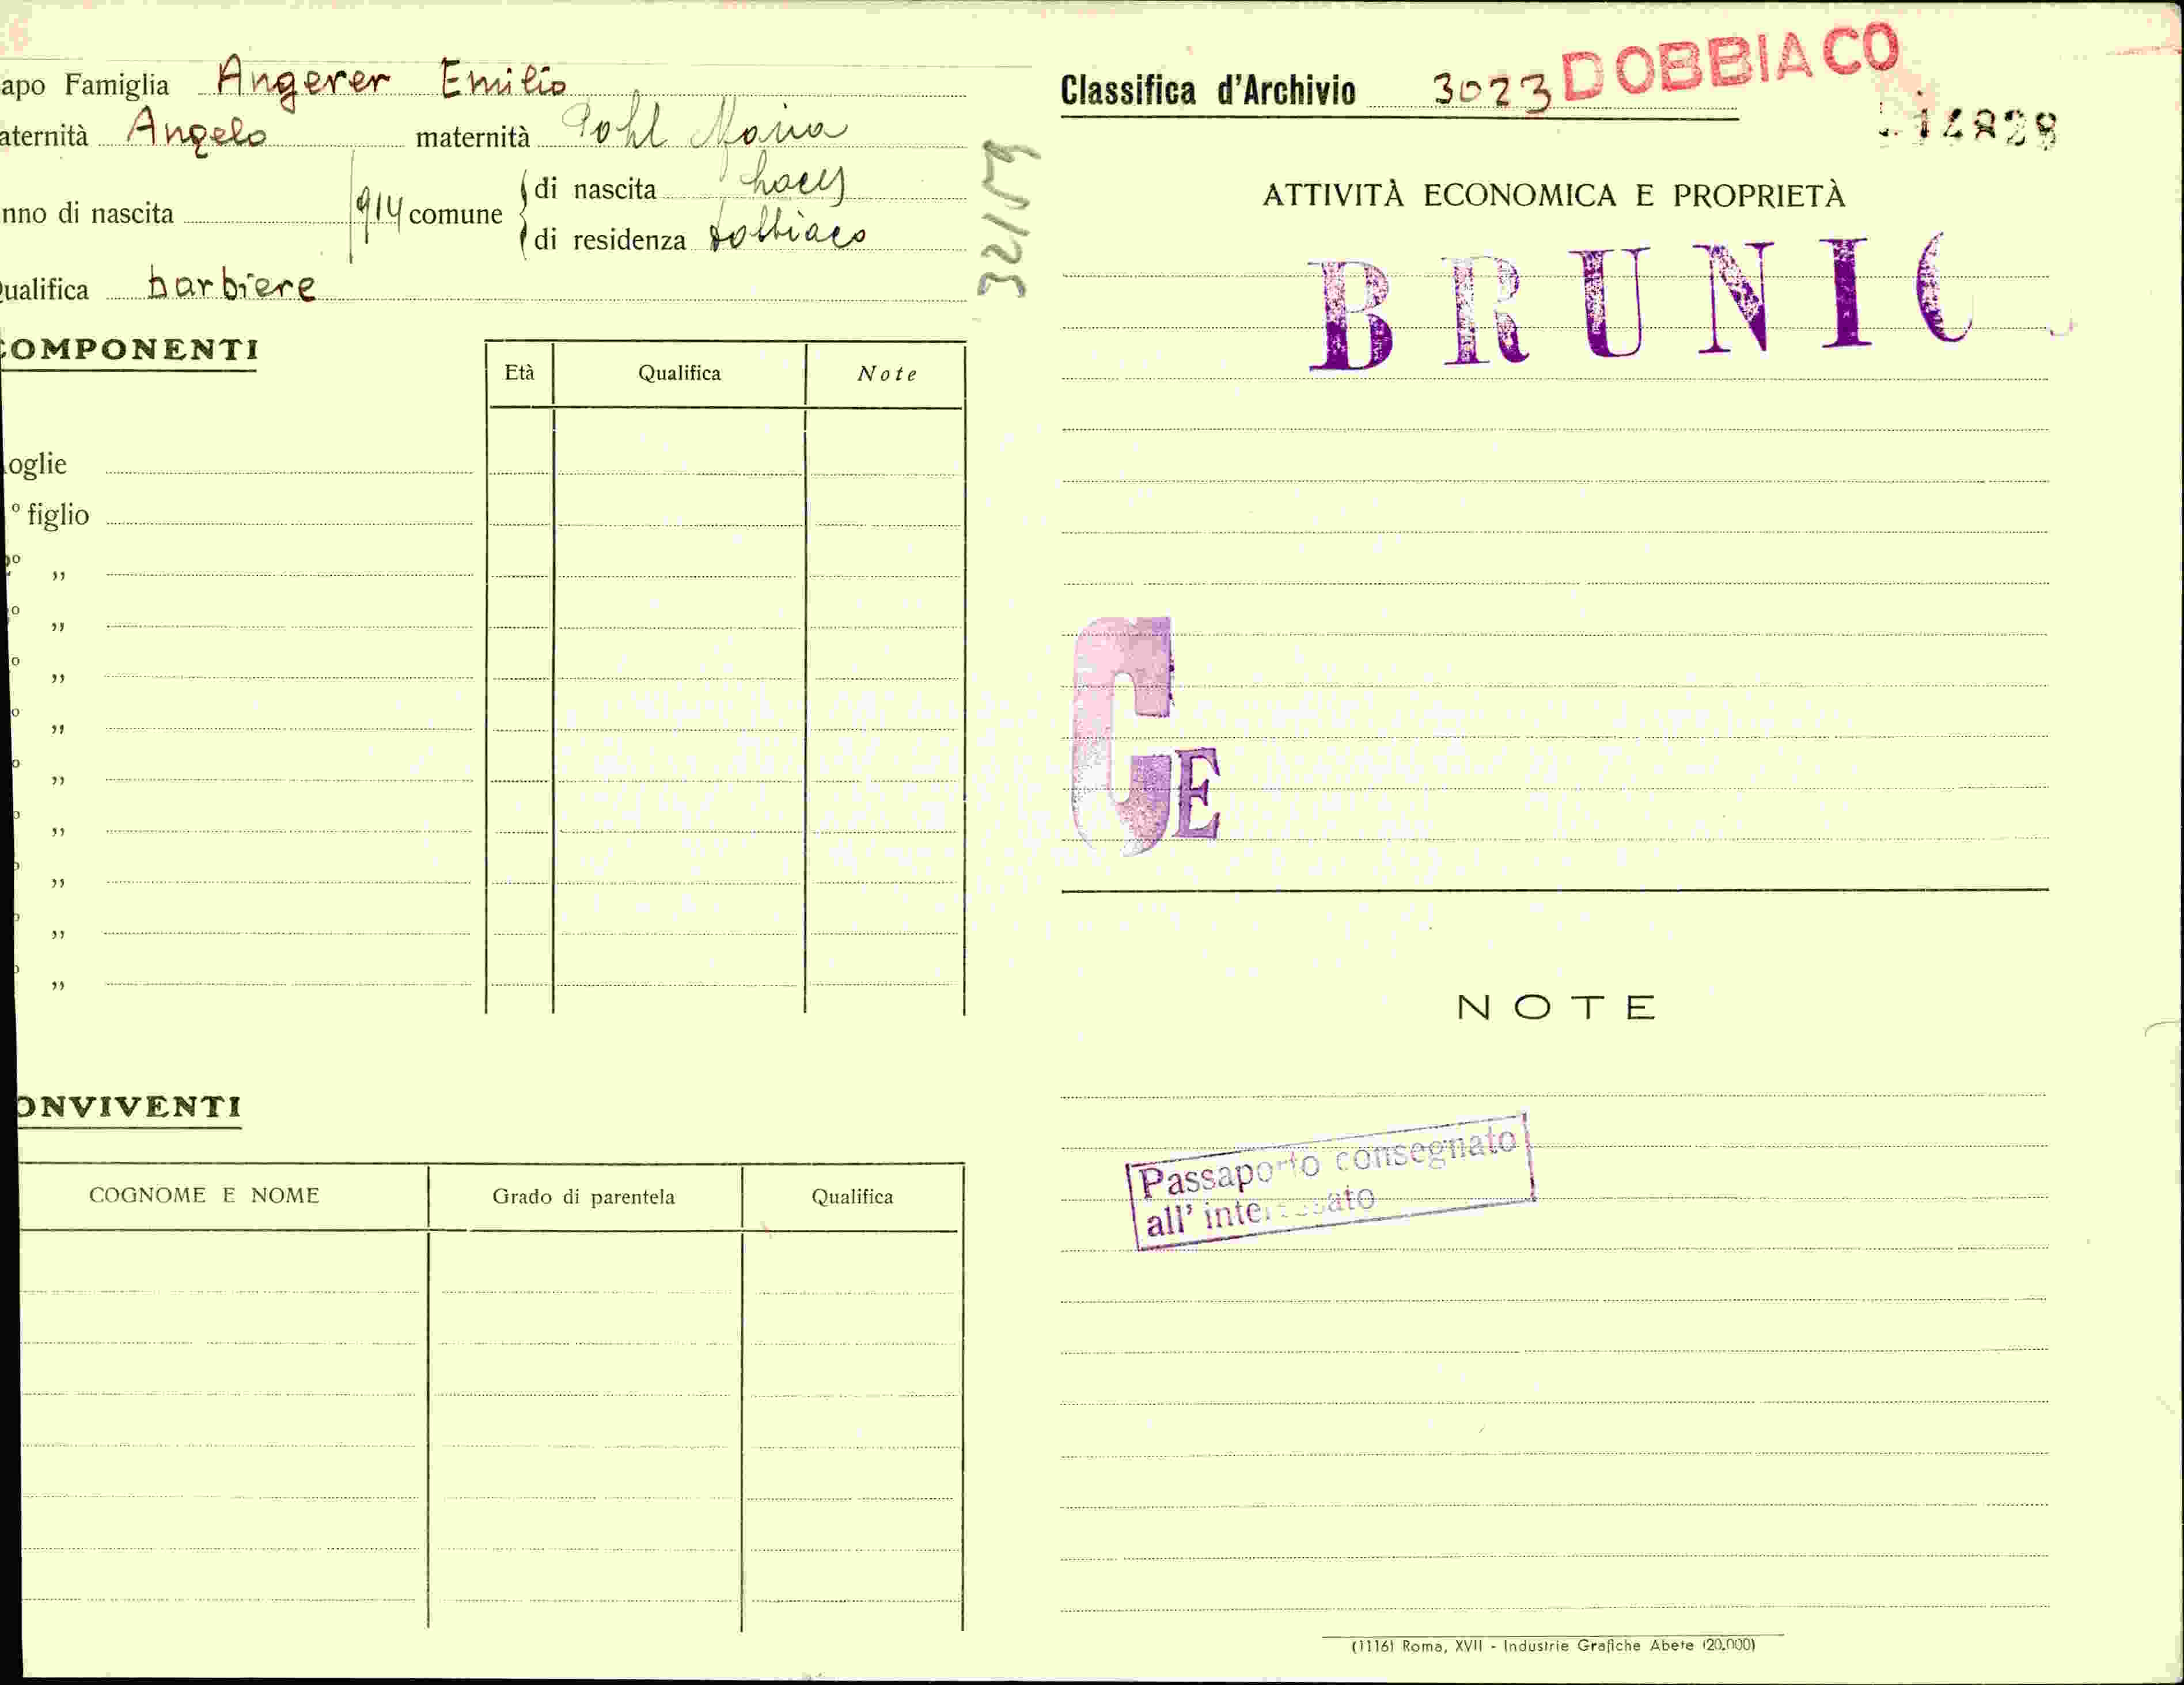 apo Famiglia Angerer Emilio
aternità Angelo maternità Pohl Maria
nno di nascita 1914 comune di nascita
di residenza dobbiaco
ualifica barbiere
32159
COMPONENTI
Età Qualifica Note
oglie
º figlio
º „
º „
º „
º „
º „
º „
º „
º „
º „
ONVIVENTI
COGNOME E NOME Grado di parentela Qualifica
Classifica d'Archivio 3023 DOBBIACO
14828
ATTIVITÀ ECONOMICA E PROPRIETÀ
BRUNIC
G
E
NOTE
Passaporto consegnato
all' interessato
(1116) Roma, XVII - Industrie Grafiche Abete (20.000)